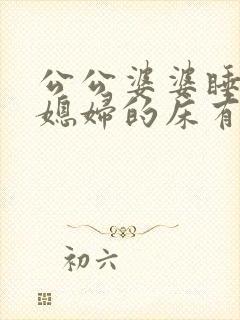 公公婆婆睡
媳妇的床有
初六